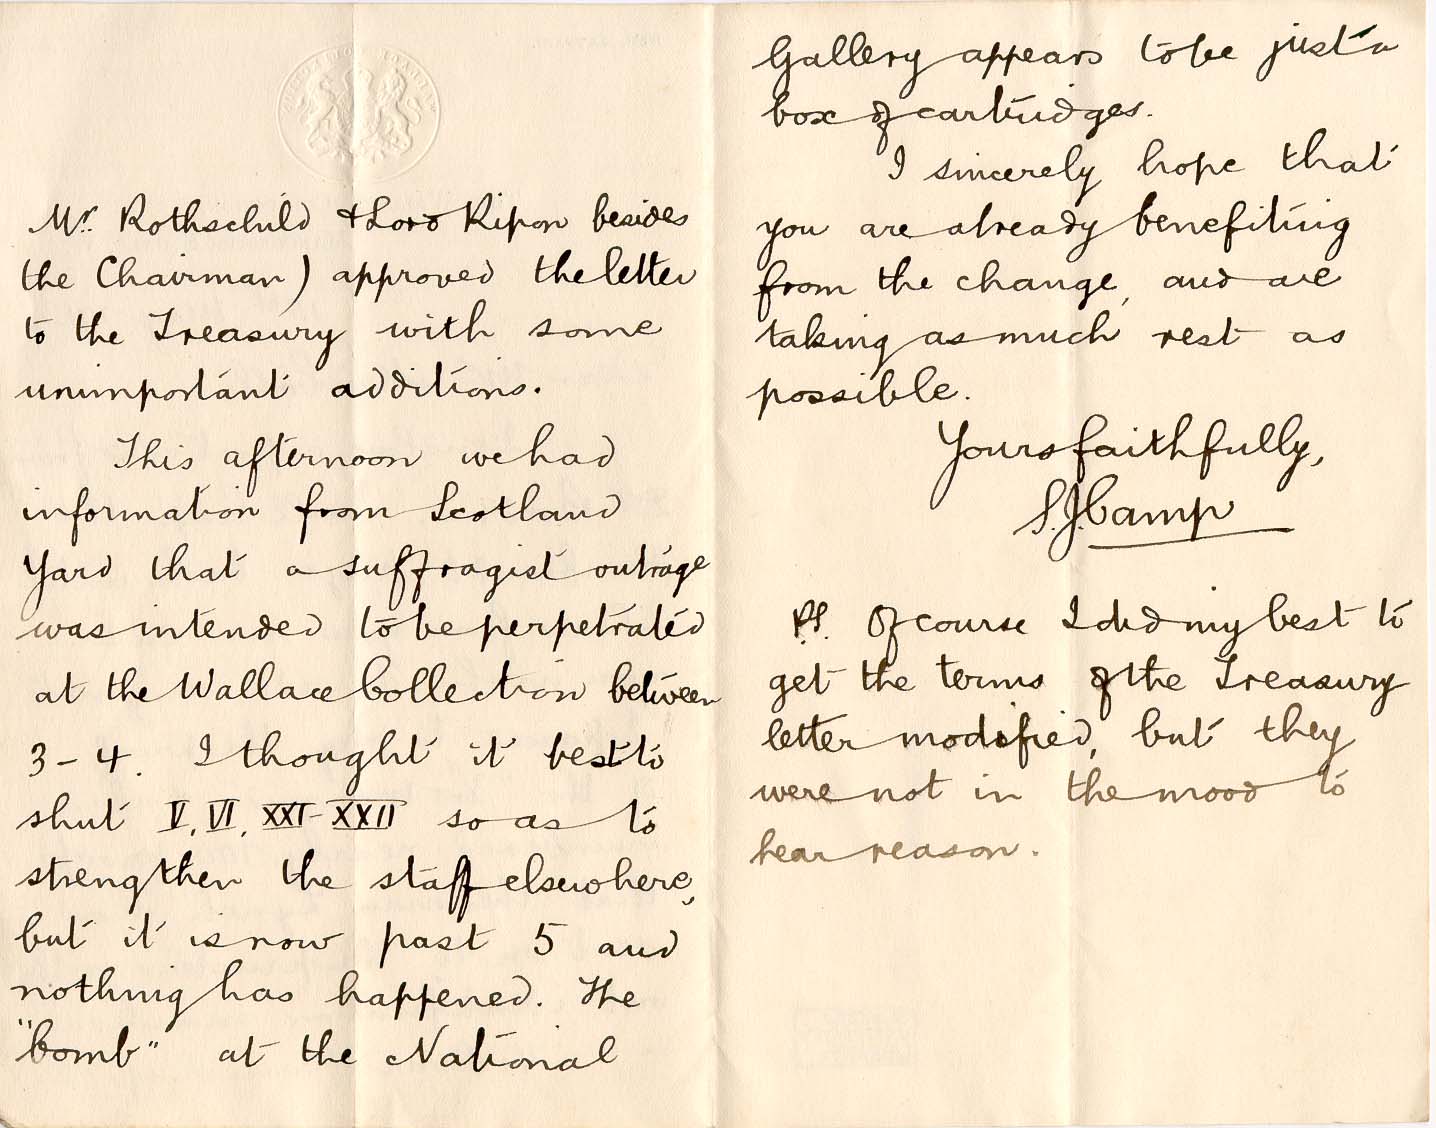 Mr. Rothschild & Lord Ripon besides
the Chairman) approved the letter
to the Treasury with some
unimportant additions.
This afternoon we had
information from Scotland
Yard that a suffragist outrage
was intended to be perpetrated
at the Wallace Collection between
3-4. I thought it best to
shut V, VI, XXI-XXII so as to
strengthen the staff elsewhere,
but it is now past 5 and
nothing has happened. The
"bomb" at the National
Gallery appears to be just a
box of cartridges.
I sincerely hope that
you are already benefiting
from the change, and are
taking as much rest as
possible.
Yours faithfully,
S.J. Camp
P.S. Of course I did my best to
get the terms of the Treasury
letter modified, but they
were not in the mood to
hear reason.